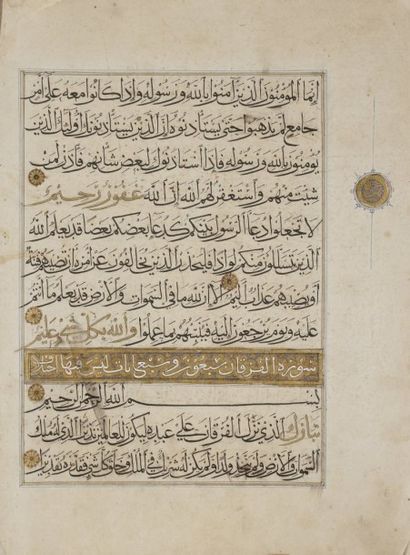 إنما المؤمنون الذين آمنوا بالله ورسوله وإذا كانوا معه على أمر
جامع لم يذهبوا حتى يستأذنوه إن الذين يستأذنونك أولئك الذين
يؤمنون بالله ورسوله فإذا استأذنوك لبعض شأنهم فأذن لمن
شئت منهم واستغفر لهم الله إن الله غفور رحيم
لا تجعلوا دعاء الرسول بينكم كدعاء بعضكم بعضا قد يعلم الله
الذين يتسللون منكم لواذا فليحذر الذين يخالفون عن أمره أن تصيبهم فتنة
أو يصيبهم عذاب أليم ألا إن لله ما في السموات والأرض قد يعلم ما أنتم
عليه ويوم يرجعون إليه فينبئهم بما عملوا والله بكل شيء عليم
سورة الفرقان سبعون وسبع آيات ليس فيها اختلاف
بسم الله الرحمن الرحيم
تبارك الذي نزل الفرقان على عبده ليكون للعالمين نذيرا الذي له ملك
السموات والأرض ولم يتخذ ولدا ولم يكن له شريك في الملك وخلق كل شيء فقدره تقديرا